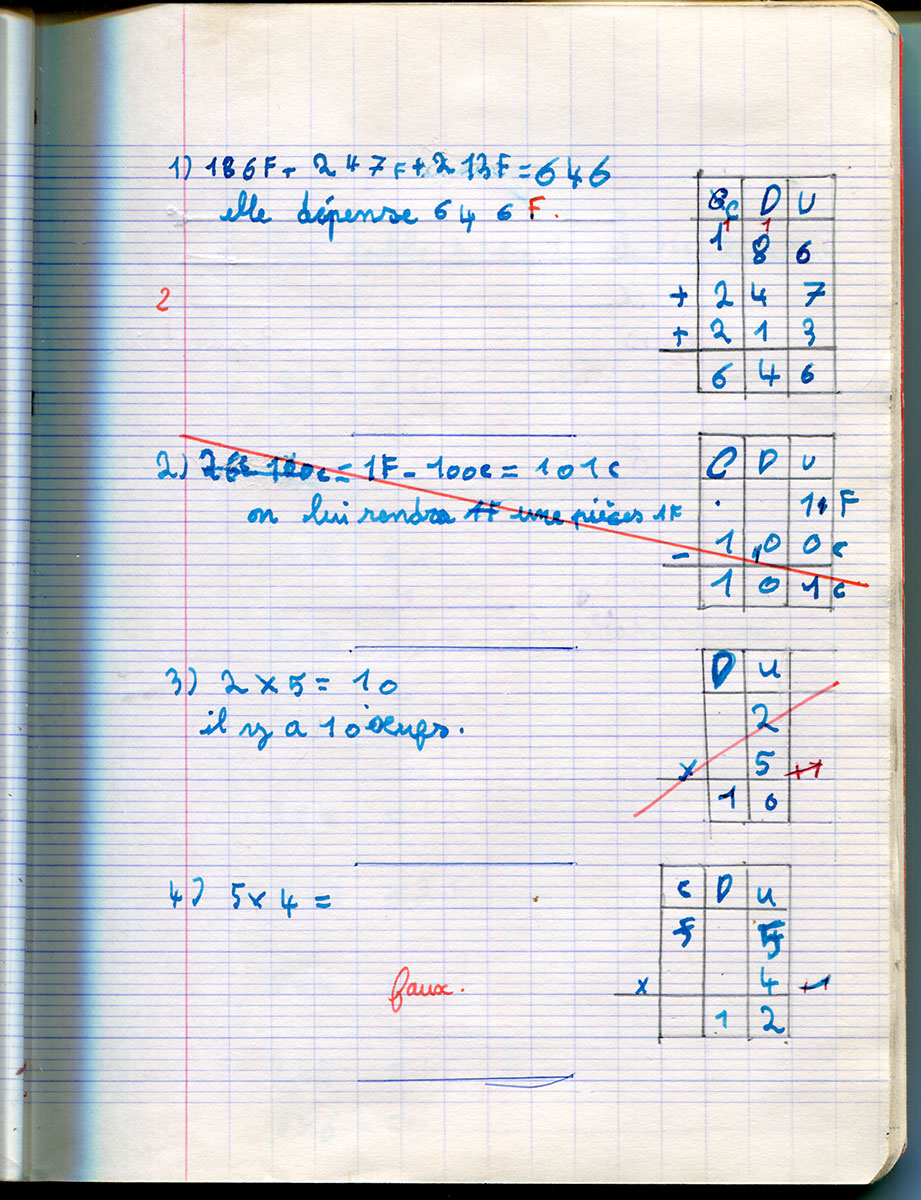 1) 186F + 247F + 213F = 646
elle dépense 646 F.
C D U
1 1
1 8 6
+ 2 4 7
+ 2 1 3
6 4 6
2
2) 100c = 1F - 100c = 101c
on lui rendra 1F une pièces 1F
C D U
1, F
- 1 0 0 c
1 0 1 c
3) 2 x 5 = 10
il y a 10 oeufs.
D U
2
x 5 +1
1 0
4) 5 x 4 =
faux.
C D U
5 5
x 4
1 2